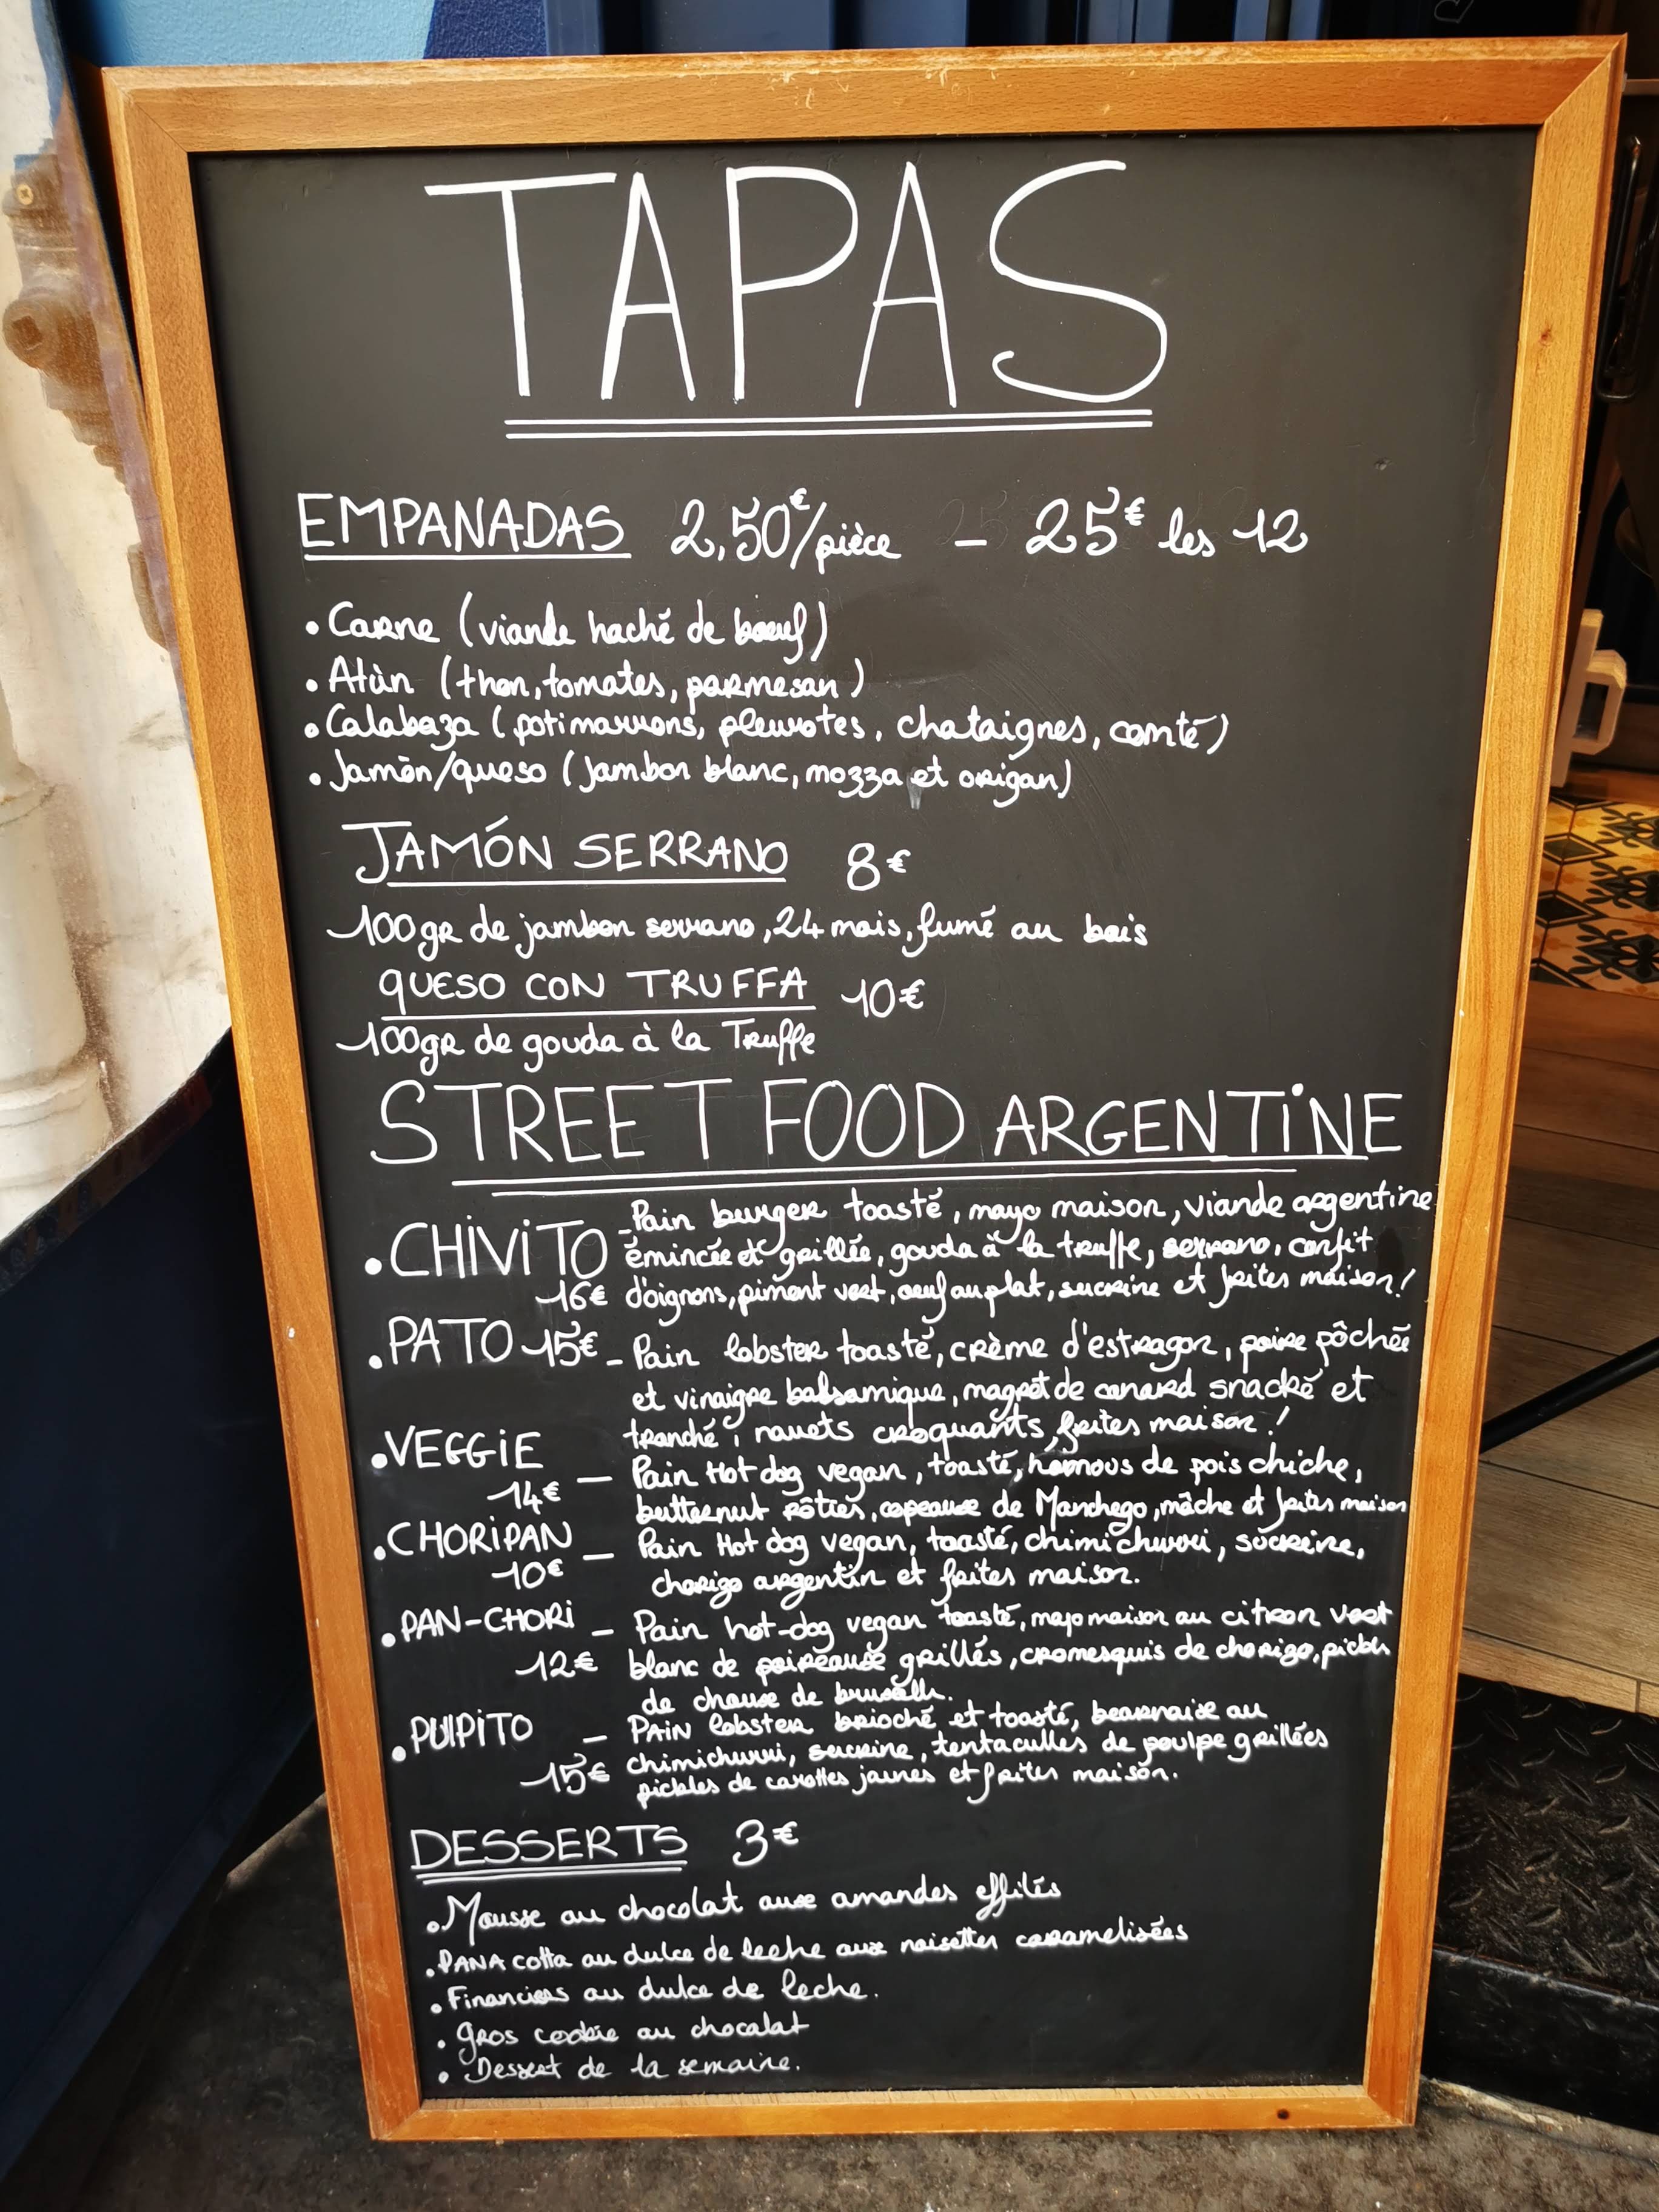 TAPAS
EMPANADAS 2,50€/pièce - 25€ les 12
• Carne (viande haché de boeuf)
• Atùn (thon, tomates, parmesan)
• Calabaza (potimarrons, pleurotes, chataignes, comté)
• Jamòn/queso (Jambon blanc, mozza et origan)
JAMÓN SERRANO 8€
100gr de jambon serrano, 24 mois, fumé au bois
QUESO CON TRUFFA 10€
100gr de gouda à la Truffe
STREET FOOD ARGENTINE
• CHIVITO - Pain burger toasté, mayo maison, viande argentine
émincée et grillée, gouda à la truffe, serrano, confit
16€ d'oignons, piment vert, oeuf au plat, sucrine et frites maison!
• PATO 15€ - Pain lobster toasté, crème d'estragon, poire pôchée
et vinaigre balsamique, magret de canard snacké et
tranché, navets croquants, frites maison!
• VEGGIE
14€ - Pain Hot dog vegan, toasté, homous de pois chiche,
butternut rôties, copeaux de Manchego, mâche et frites maison
• CHORIPAN
10€ - Pain Hot dog vegan, toasté, chimichurri, sucrine,
chorizo argentin et frites maison.
• PAN-CHORI - Pain hot-dog vegan toasté, mayo maison au citron vert
12€ blanc de poireaux grillés, cromesquis de chorizo, pickles
de choux de bruxelle.
• PULPITO - PAIN lobster brioché et toasté, bearnaise au
15€ chimichurri, sucrine, tentaculles de poulpe grillées
pickles de carottes jaunes et frites maison.
DESSERTS 3€
• Mousse au chocolat aux amandes effilés
• PANA cotta au dulce de leche aux noisettes caramelisées
• Financiers au dulce de leche.
• Gros cookie au chocolat
• Dessert de la semaine.